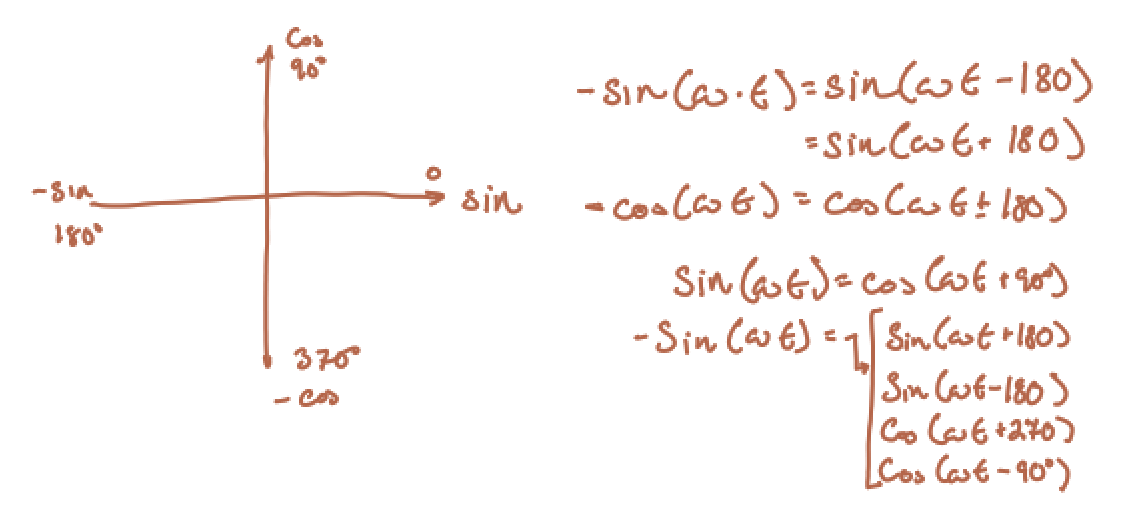 Cos
90°
0
-sin
sin
180°
370°
- cos
-sin(ω·t)=sin(ωt -180)
=sin(ωt+ 180)
-cos(ωt) = cos(ωt ± 180)
Sin(ωt)=cos(ωt +90°)
-Sin(ωt) =
Sin(ωt+180)
Sin(ωt-180)
Cos(ωt+270)
Cos(ωt-90°)